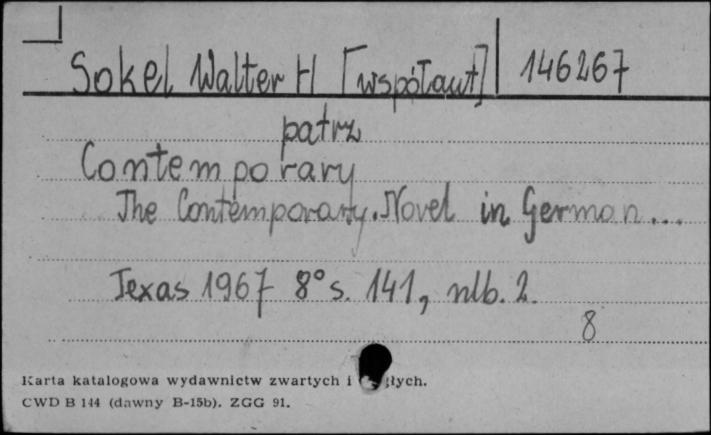 Sokel Walter H [współaut] 146267
patrz
Contemporary
The Contemporary Novel in German...
Texas 1967 8° s. 141, nlb. 2.
8
Karta katalogowa wydawnictw zwartych i
CWD B 144 (dawny B-15b). ZGG 91.